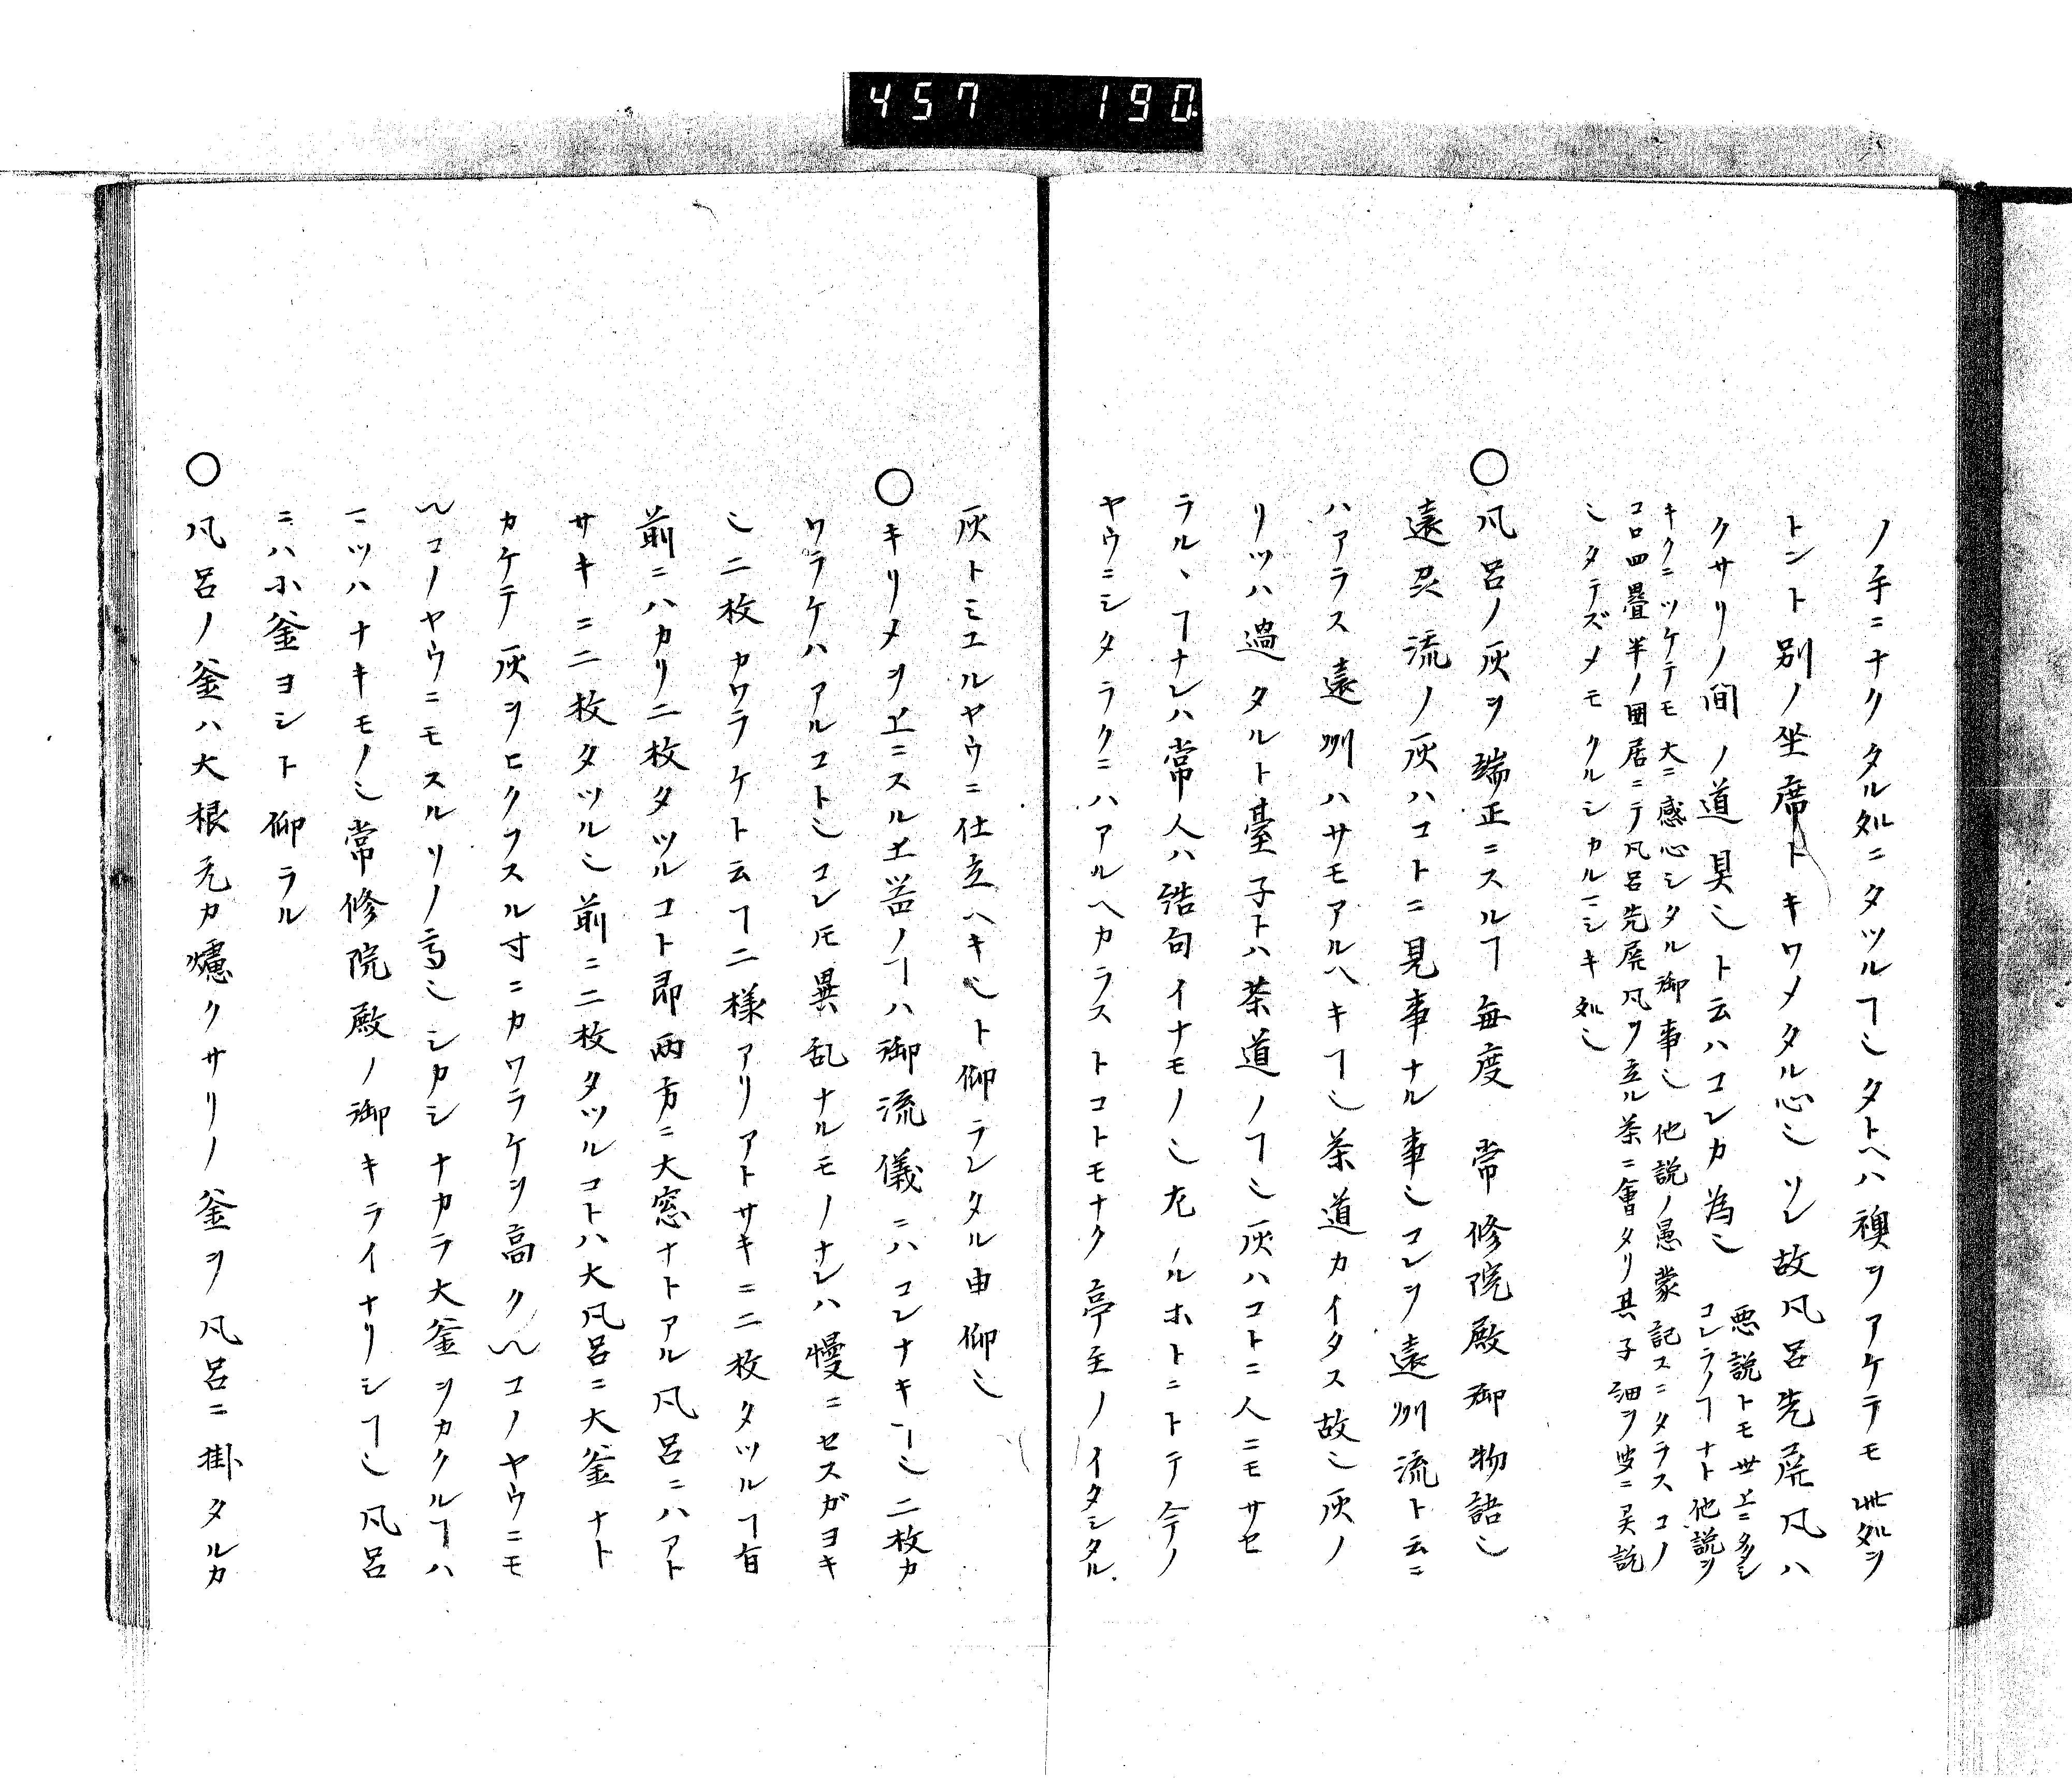 457 190
ノ手ニナクタル処ニタツルヿ也タトヘハ襖ヲアケテモ此処ヲ
トント別ノ坐席トキワメタル心也ソレ故凡呂先屏凡ハ
クサリノ間ノ道具也ト云ハコレカ為也
悪説トモ世上ニ多シ
コレラノヿナト他説ヲ
キクニツケテモ大ニ感心シタル御事也他説ノ愚蒙記スニタラスコノ
コロ四畳半ノ囲居ニテ凡呂先屏凡ヲ立ル茶ニ會タリ其子細ヲ
シタテズメモクルシカルマシキ処也
○凡呂ノ灰ヲ端正ニスルヿ毎度常修院殿御物語也
遠州流ノ灰ハコトニ見事ナル事也コレヲ遠州流ト云ニ
ハアラス遠州ハサモアルヘキヿ也茶道カイタス故也灰ノ
リツハ過タルト臺子トハ茶道ノヿ也灰ハコトニ人ニモサセ
ラルヽヿナレハ常人ハ結句イナモノ也尤ノルホトニトテ今ノ
ヤウニシタラクニハアルヘカラストコトモナク亭主ノイタシタル
灰トミユルヤウニ仕立ヘキ也ト仰ラレタル由仰也
○キリメヲ上ニスル土器ノヿハ御流儀ニハコレナキヿ也二枚カ
ワラケハアルコト也コレモ異乱ナルモノナレハ慢ニセスガヨキ
也二枚カワラケト云ヿ二様アリアトサキニ二枚タツルヿ有
前ニハカリ二枚タツルコト即両方ニ大窓ナトアル凡呂ニハアト
サキニ二枚タツル也前ニ二枚タツルコトハ大凡呂ニ大釜ナト
カケテ灰ヲヒクヽスル寸ニカワラケヲ高ク〽コノヤウニモ
〽コノヤウニモスルソノ為也シカシナカラ大釜ヲカクルヿハ
ミツハナキモノ也常修院殿ノ御キライナリシヿ也凡呂
ニハ小釜ヨシト仰ラル
○凡呂ノ釜ハ大根元カ爐クサリノ釜ヲ凡呂ニ掛タルカ